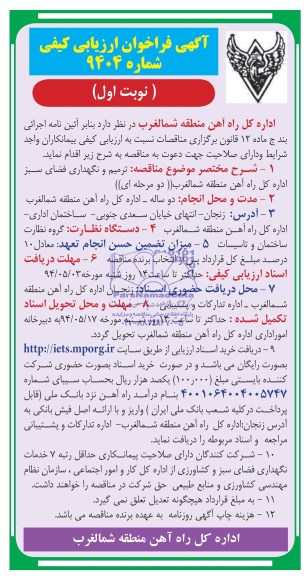 آگهی فراخوان ارزیابی کیفی
شماره ۹۴۰۴
( نوبت اول)
اداره کل راه آهن منطقه شمالغرب در نظر دارد بنابر آئین نامه اجرائی
بند ج ماده ۱۲ قانون برگزاری مناقصات نسبت به ارزیابی کیفی پیمانکاران واجد
شرایط ودارای صلاحیت جهت دعوت به مناقصه به شرح زیر اقدام نماید.
۱ - شرح مختصر موضوع مناقصه: ترمیم و نگهداری فضای سبز
اداره کل راه آهن منطقه شمالغرب(( دو مرحله ای))
۲ - مدت و محل انجام: دو ساله _ اداره کل راه آهن منطقه شمالغرب
۳ - آدرس: زنجان- انتهای خیابان سعدی جنوبی- ساختمان اداری-
اداره کل راه آهن منطقه شمالغرب ۴ - دستگاه نظارت: گروه نظارت
ساختمان و تاسیسات ۵ - میزان تضمین حسن انجام تعهد: معادل۱۰
درصد مبلغ کل قرارداد پس از انتخاب برنده مناقصه ۶ - مهلت دریافت
اسناد ارزیابی کیفی: حداکثر تا ساعت۱۴ روز شنبه مورخه۹۴/۰۵/۰۳
۷ - محل دریافت حضوری اسناد: زنجان اداره کل راه آهن منطقه
شمالغرب _ اداره تدارکات و پشتیبانی ۸ - مهلت و محل تحویل اسناد
تکمیل شده : حداکثر تا ساعت روز شنبه مورخه ۹۴/۰۵/۱۷به دبیرخانه
اموراداری اداره کل راه آهن منطقه شمالغرب تحویل گردد.
۹ - دریافت خرید اسناد ارزیابی از طریق سایت http://iets.mporg.ir
بصورت رایگان می باشد و در صورت خرید اسناد بصورت حضوری شرکت
کننده بایستی مبلغ (۱۰۰،۰۰۰) یکصد هزار ریال بحساب سیبای شماره
۴۰۰۱۰۶۴۰۰۴۰۰۵۷۴۷ بنام درآمد راه آهن نزد بانک ملی (قابل
پرداخت درکلیه شعب بانک ملی ایران ) واریز و با ارائه اصل فیش بانکی به
آدرس زنجان:اداره کل راه آهن منطقه شمالغرب- اداره تدارکات و پشتیبانی
مراجعه و اسناد مربوطه را دریافت نماید.
۱۰ - شرکت کنندگان دارای صلاحیت پیمانکاری حداقل رتبه ۷ خدمات
نگهداری فضای سبز و کشاورزی از اداره کل کار و امور اجتماعی ، سازمان نظام
مهندسی کشاورزی و منابع طبیعی حق شرکت در مناقصه را خواهند داشت.
۱۱ - به مبلغ قرارداد هیچگونه تعدیل تعلق نمی گیرد.
۱۲ - هزینه چاپ آگهی روزنامه به عهده برنده مناقصه می باشد.
اداره کل راه آهن منطقه شمالغرب